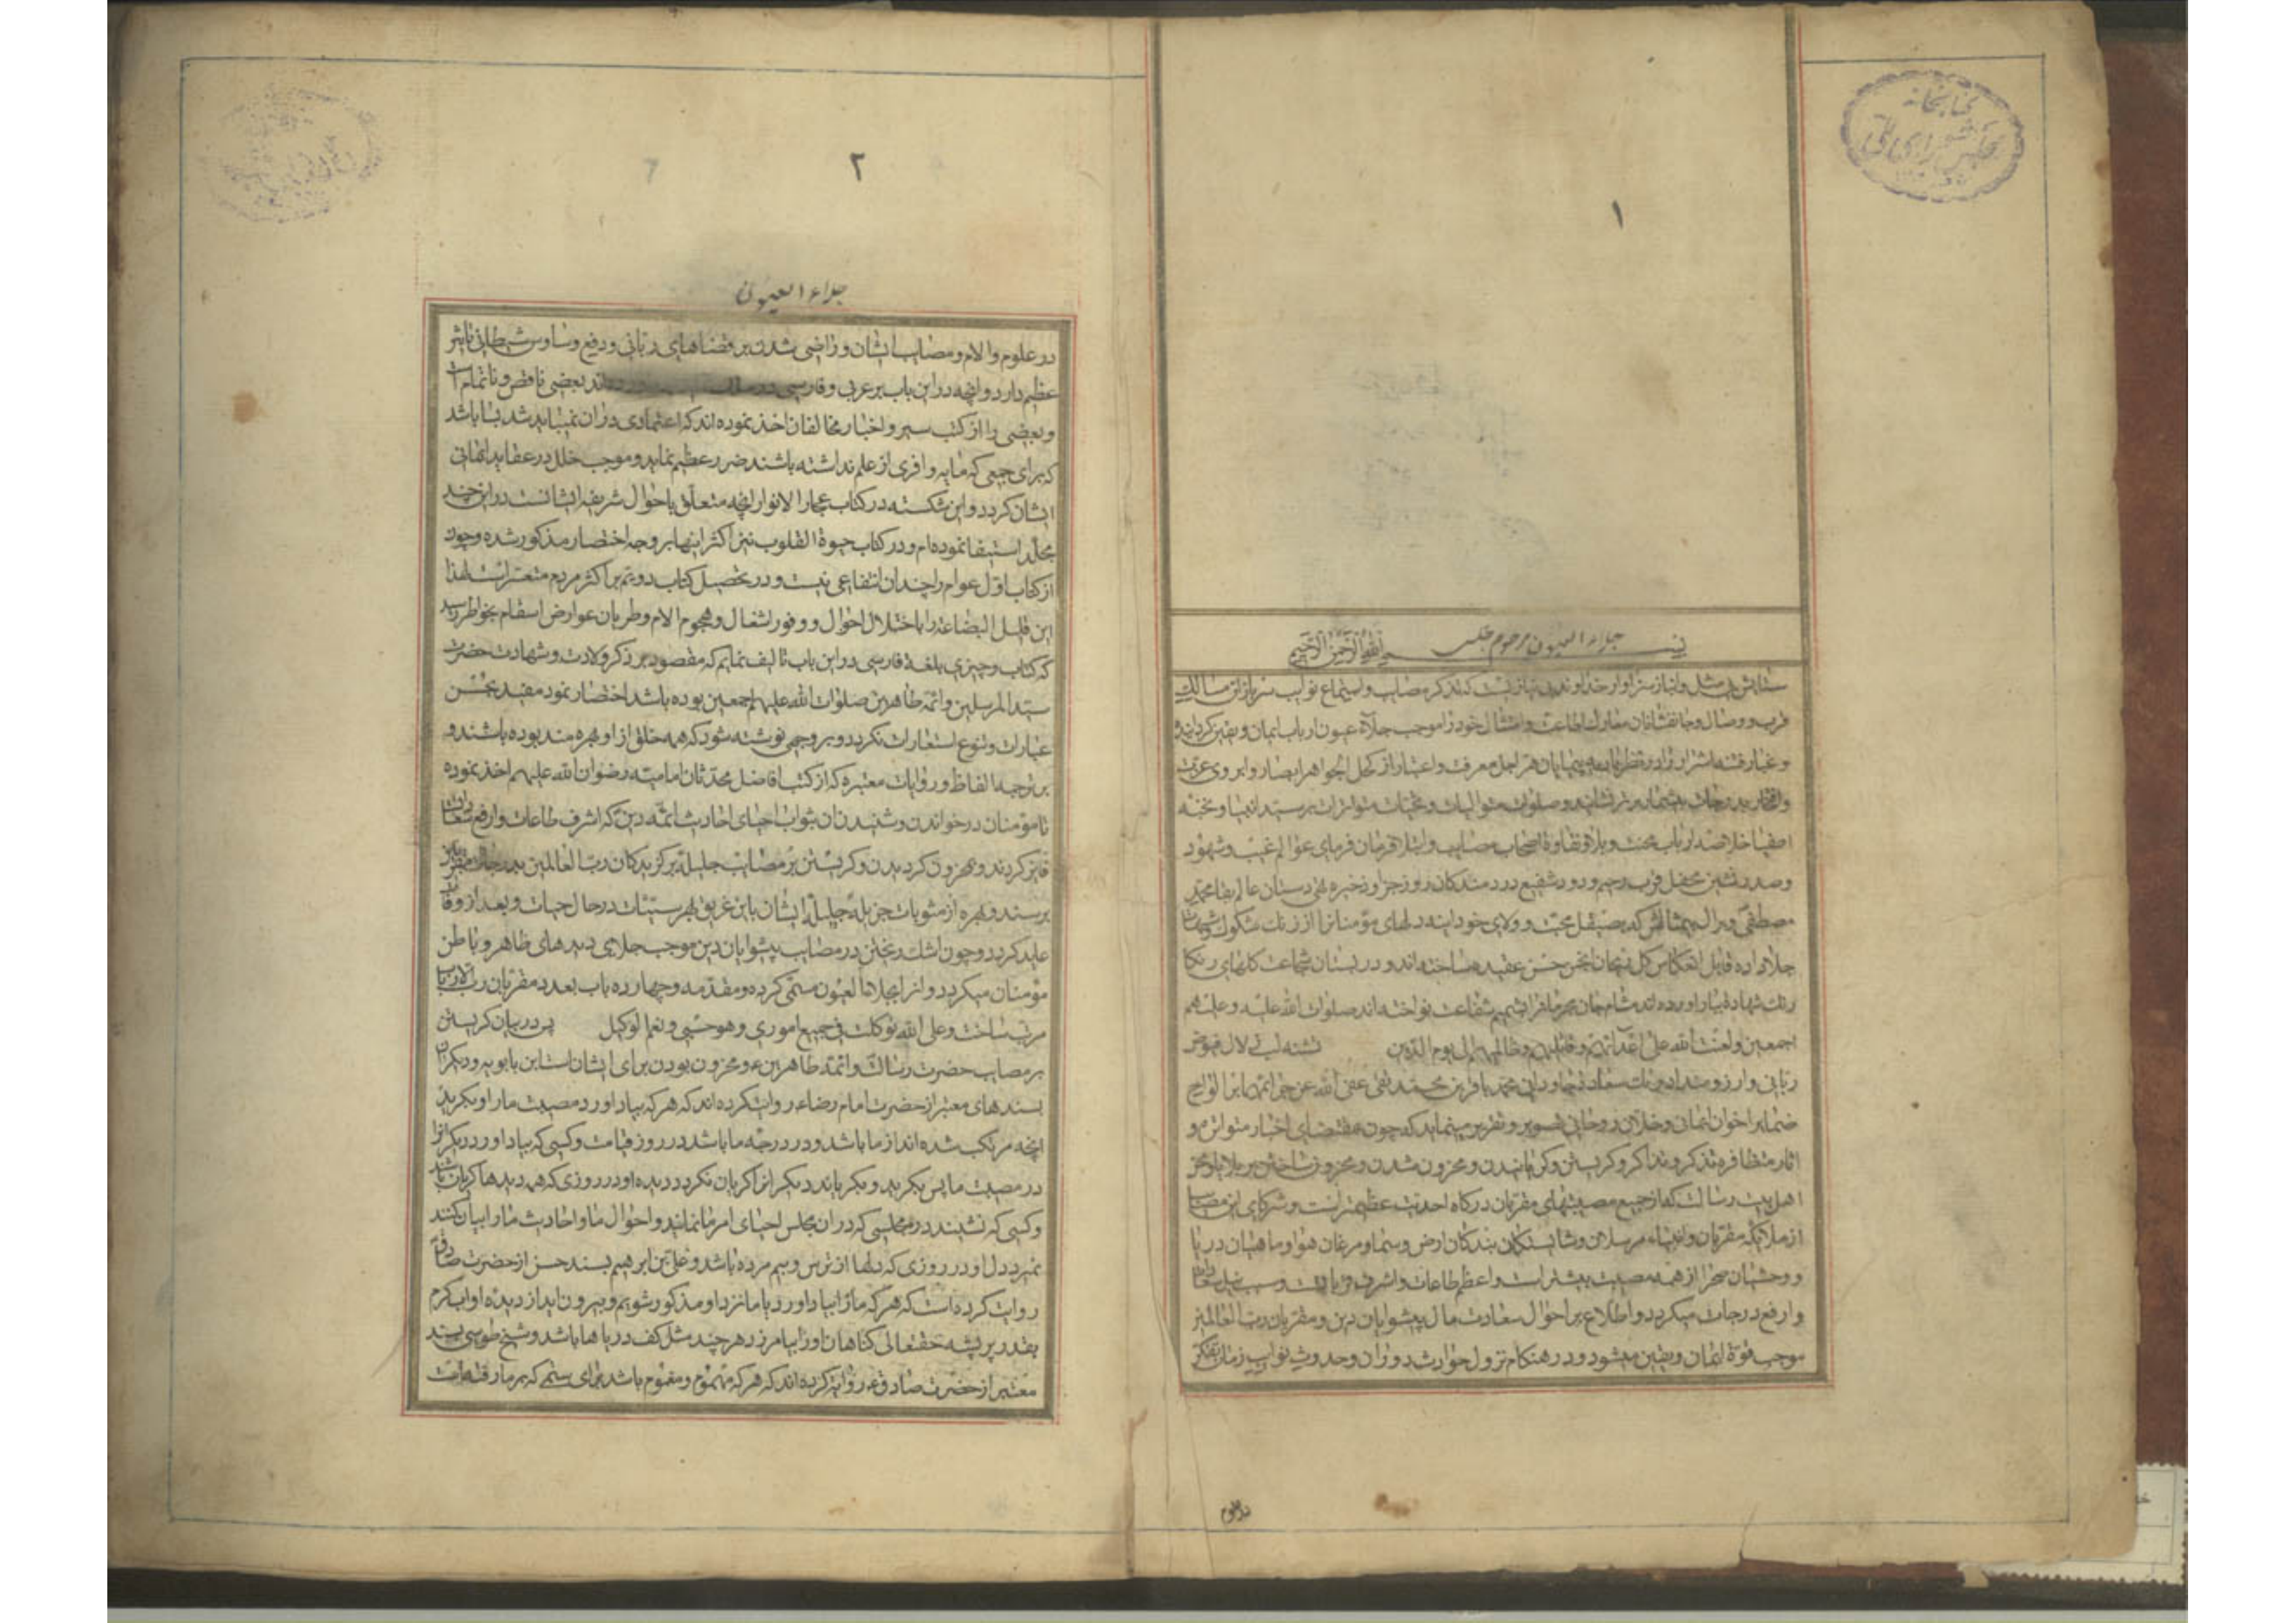 کتابخانه
مجلس شورای ملی
۱
بسم الله الرحمن الرحیم
جلاء العیون مرحوم مجلسی
ستایش بی مثل و انباز سزاوار خداوند بی نیازیست که تذکر مصایب و استماع نوایب سربازان مسالک
قرب و وصال و جانفشانان معارک اطاعت و امتثال خود را موجب جلاء عیون ارباب ایمان و یقین گردانید
و غبار فتنه اشرار را در نظر پیمایان مراحل معرفت و اعتبار از کحل الجواهر ابصار و ابروی عزت
و افتخار بدرجات بیشمار برتر نشانید و صلوات متوالیات و تحیات متواترات بر سید انبیا و نخبه
اصفیا خلاصه ارباب محنت و بلا و نقاوه اصحاب مصایب و ابتلا قرمان فرمای عوالم غیب و شهود
و صدر نشین محفل قرب رحیم و دود شفیع دردمندگان روز جزا و ذخیره تهی دستان عالم بقا محمد
مصطفی و بر ال بیمثالش که بصیقل محبت و ولای خود اینه دلهای مؤمنانرا از زنک شکوک و شبهات
جلا داده قابل انعکاس حسن عقیده ساخته‌اند و در بستان شجاعت کلهای رنکا
رنک شهادة ببار اورده اند مشام جان مجرمانرا بشمیم شفاعت نواخته اند صلوات الله علیه و علیهم
اجمعین و لعنت الله علی اعدائهم و قاتلیهم و ظالمیهم الی یوم الدین تشنه لب زلال فیوض
ربانی و ارزومند ادراک سعادت جاودانی محمد باقر بن محمد تقی عفی الله عن جرائمهما بر الواح
ضمایر اخوان ایمانی و خلان روحانی تصویر و تقریر مینماید که چون بمقتضای اخبار متواتره و
اثار متظافره تذکر و تذاکر و کریستن و کریانیدن و محزون شدن و محزون ساختن بر بلایا و محن
اهل بیت رسالت که از جمیع مصیبتهای مقربان درکاه احدیت عظیمتر است و شرکای این مصایب
از ملائکه مقربان و انبیاء مرسلان و شایستکان بندکان ارض و سما و مرغان هوا و ماهیان دریا
و وحشیان صحرا از همه مصیبت بیشتر است و اعظم طاعات و اشرف قربات و سبب نیل سعادات
و ارفع درجات میکردد و اطلاع بر احوال سعادت مال پیشوایان دین و مقربان رب العالمین
موجب قوة ایمان و یقین میشود و در هنکام نزول حوادث دوران و حدوث نوایب زمان تفکر
در علوم
۲
جلاء العیون
در علوم و الام و مصایب ایشان و راضی شدن بر قضاهای ربانی و دفع وساوس شیطانی تاثیر
عظیم دارد و انچه در این باب بر عربی و فارسی در بعضی ناقص و ناتمام است
و بعضی را از کتب سیر و اخبار مخالفان اخذ نموده اند که اعتمادی در ان نمیباید شد بسا باشد
که برای جمعی که مایه وافری از علم نداشته باشند ضرر عظیم نماید و موجب خلل در عقاید ایمانی
ایشان کردد و این شکسته در کتاب بحار الانوار انچه متعلق باحوال شریفه ایشانست در این چند
مجلد استیفا نموده ام و در کتاب حیوة القلوب نیز اکثر اینها بر وجه اختصار مذکور شده و چون
از کتاب اول عوام را چندان انتفاعی نیست و در تحصیل کتاب دویم بر اکثر مردم متعسر است لهذا
این قلیل البضاعة را با اختلال احوال و وفور اشغال و هجوم الام و طریان عوارض اسقام بخواطر رسید
که کتاب وجیزی بلغة فارسی در این باب تالیف نمایم که مقصود بر ذکر ولادت و شهادت حضرت
سید المرسلین و ائمه طاهرین صلوات الله علیهم اجمعین بوده باشد اختصار نمود مقید بحسن
عبارات و تنوع استعارات نکردد و بر وجهی نوشته شود که همه خلق از او بهره مند بوده باشند و
بر ترجمه الفاظ و روایات معتبره که از کتب افاضل محدثان امامیه رضوان الله علیهم اخذ نموده
تا مؤمنان در خواندن و شنیدن ان بثواب احیای احادیث ائمه دین که اشرف طاعات و ارفع سعادات
فایز کردند و محزون کردیدن و کریستن بر مصایب جلیله برکزیدکان رب العالمین بدرجات مقربین
برسند و بهره از مثوبات جزیله جلیله ایشان باین غریق بحر سیئات در حال حیات و بعد از وفات
عاید کردد و چون اشک ریختن در مصایب پیشوایان دین موجب جلای دیدهای ظاهر و باطن
مؤمنان میکردد و انرا بجلاء العیون مسمی کرده و مقدمه و چهارده باب بعدد مقربان رب الارباب
مرتب ساخت و علی الله توکلت فی جمیع اموری و هو حسبی و نعم الوکیل پر در بیان کریستن
بر مصایب حضرت رسالت و ائمه طاهرین ع و محزون بودن برای ایشان است ابن بابویه و دیکران
بسندهای معتبر از حضرت امام رضا ع روایت کرده اند که هر که بیاد اورد مصیبت ما را و بکرید
انچه مرتکب شده اند از ما باشد و در درجه ما باشد در روز قیامت و کسی که بیاد اورد دیکرانرا
در مصیبت ما پس بکرید و بکریاند دیکرانرا کریان نکردد دیده او در روزی که همه دیدها کریان باشد
و کسی که نشیند در مجلسی که در ان مجلس احیای امر ما نمایند و احوال ما و احادیث ما را بیان کنند
نمیرد دل او در روزی که دلها از ترس و بیم مرده باشد و علی بن ابرهیم بسند حسن از حضرت صادق
روایت کرده است که هر که ما را بیاد اورد یا ما نزد او مذکور شویم و بیرون اید از دیده او اب کرم
بقدر پر پشه حقتعالی کناهان او را بیامرزد هر چند مثل کف دریاها باشد و شیخ طوسی بسند
معتبر از حضرت صادق ع روایة کرده اند که هر که مهموم و مغموم باشد برای ستمی که بر ما رفته است